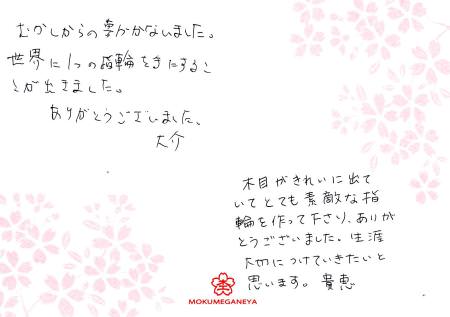 むかしからの夢がかないました。
世界に1つの指輪をてにするこ
とが出きました。
ありがとうございました。
大介
木目がきれいに出て
いてとても素敵な指
輪を作って下さり、ありが
とうございました。生涯
大切につけていきたいと
思います。貴恵
MOKUMEGANEYA